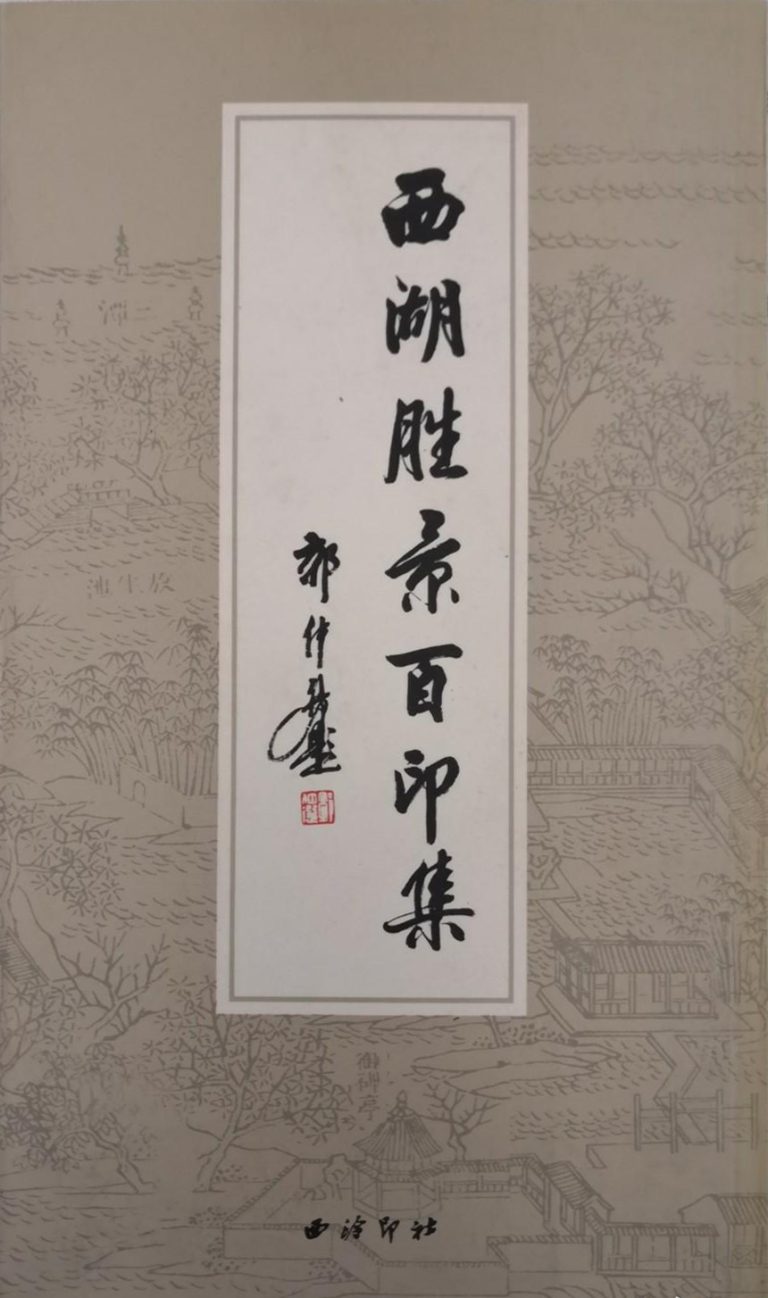 西湖胜景百印集
郭仲選
三
洲
放生池
御碑亭
西泠印社